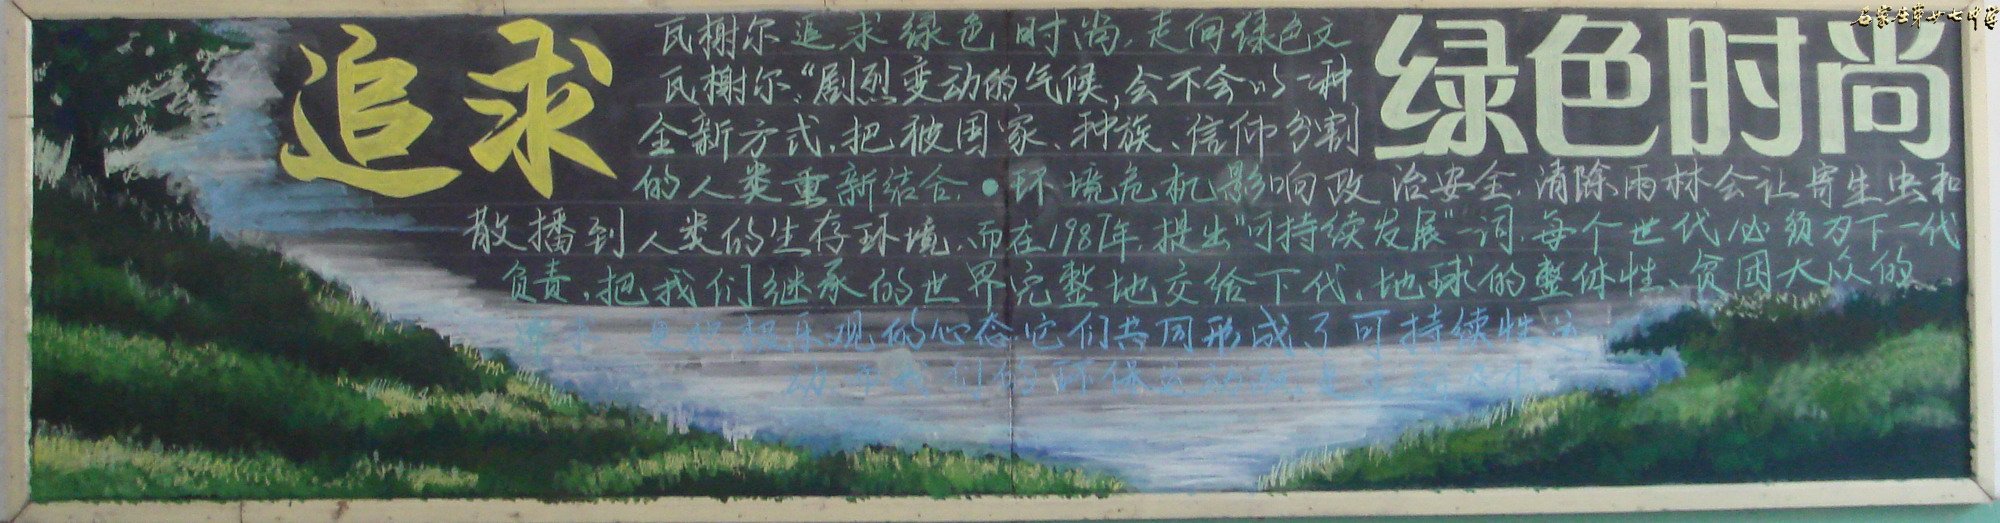 追求
绿色时尚
石家庄第廿七中学
瓦榭尔追求绿色时尚,走向绿色文
瓦榭尔:“剧烈变动的气候,会不会以一种
全新方式,把被国家、种族、信仰分割
的人类重新结合.●环境危机影响政治安全,消除雨林会让寄生虫和
散播到人类的生存环境,而在1987年,提出“可持续发展”一词,每个世代必须为下一代
负责,把我们继承的世界完整地交给下代,地球的整体性、贫困大众的
且积极乐观的心态它们共同形成了可持续性运
动